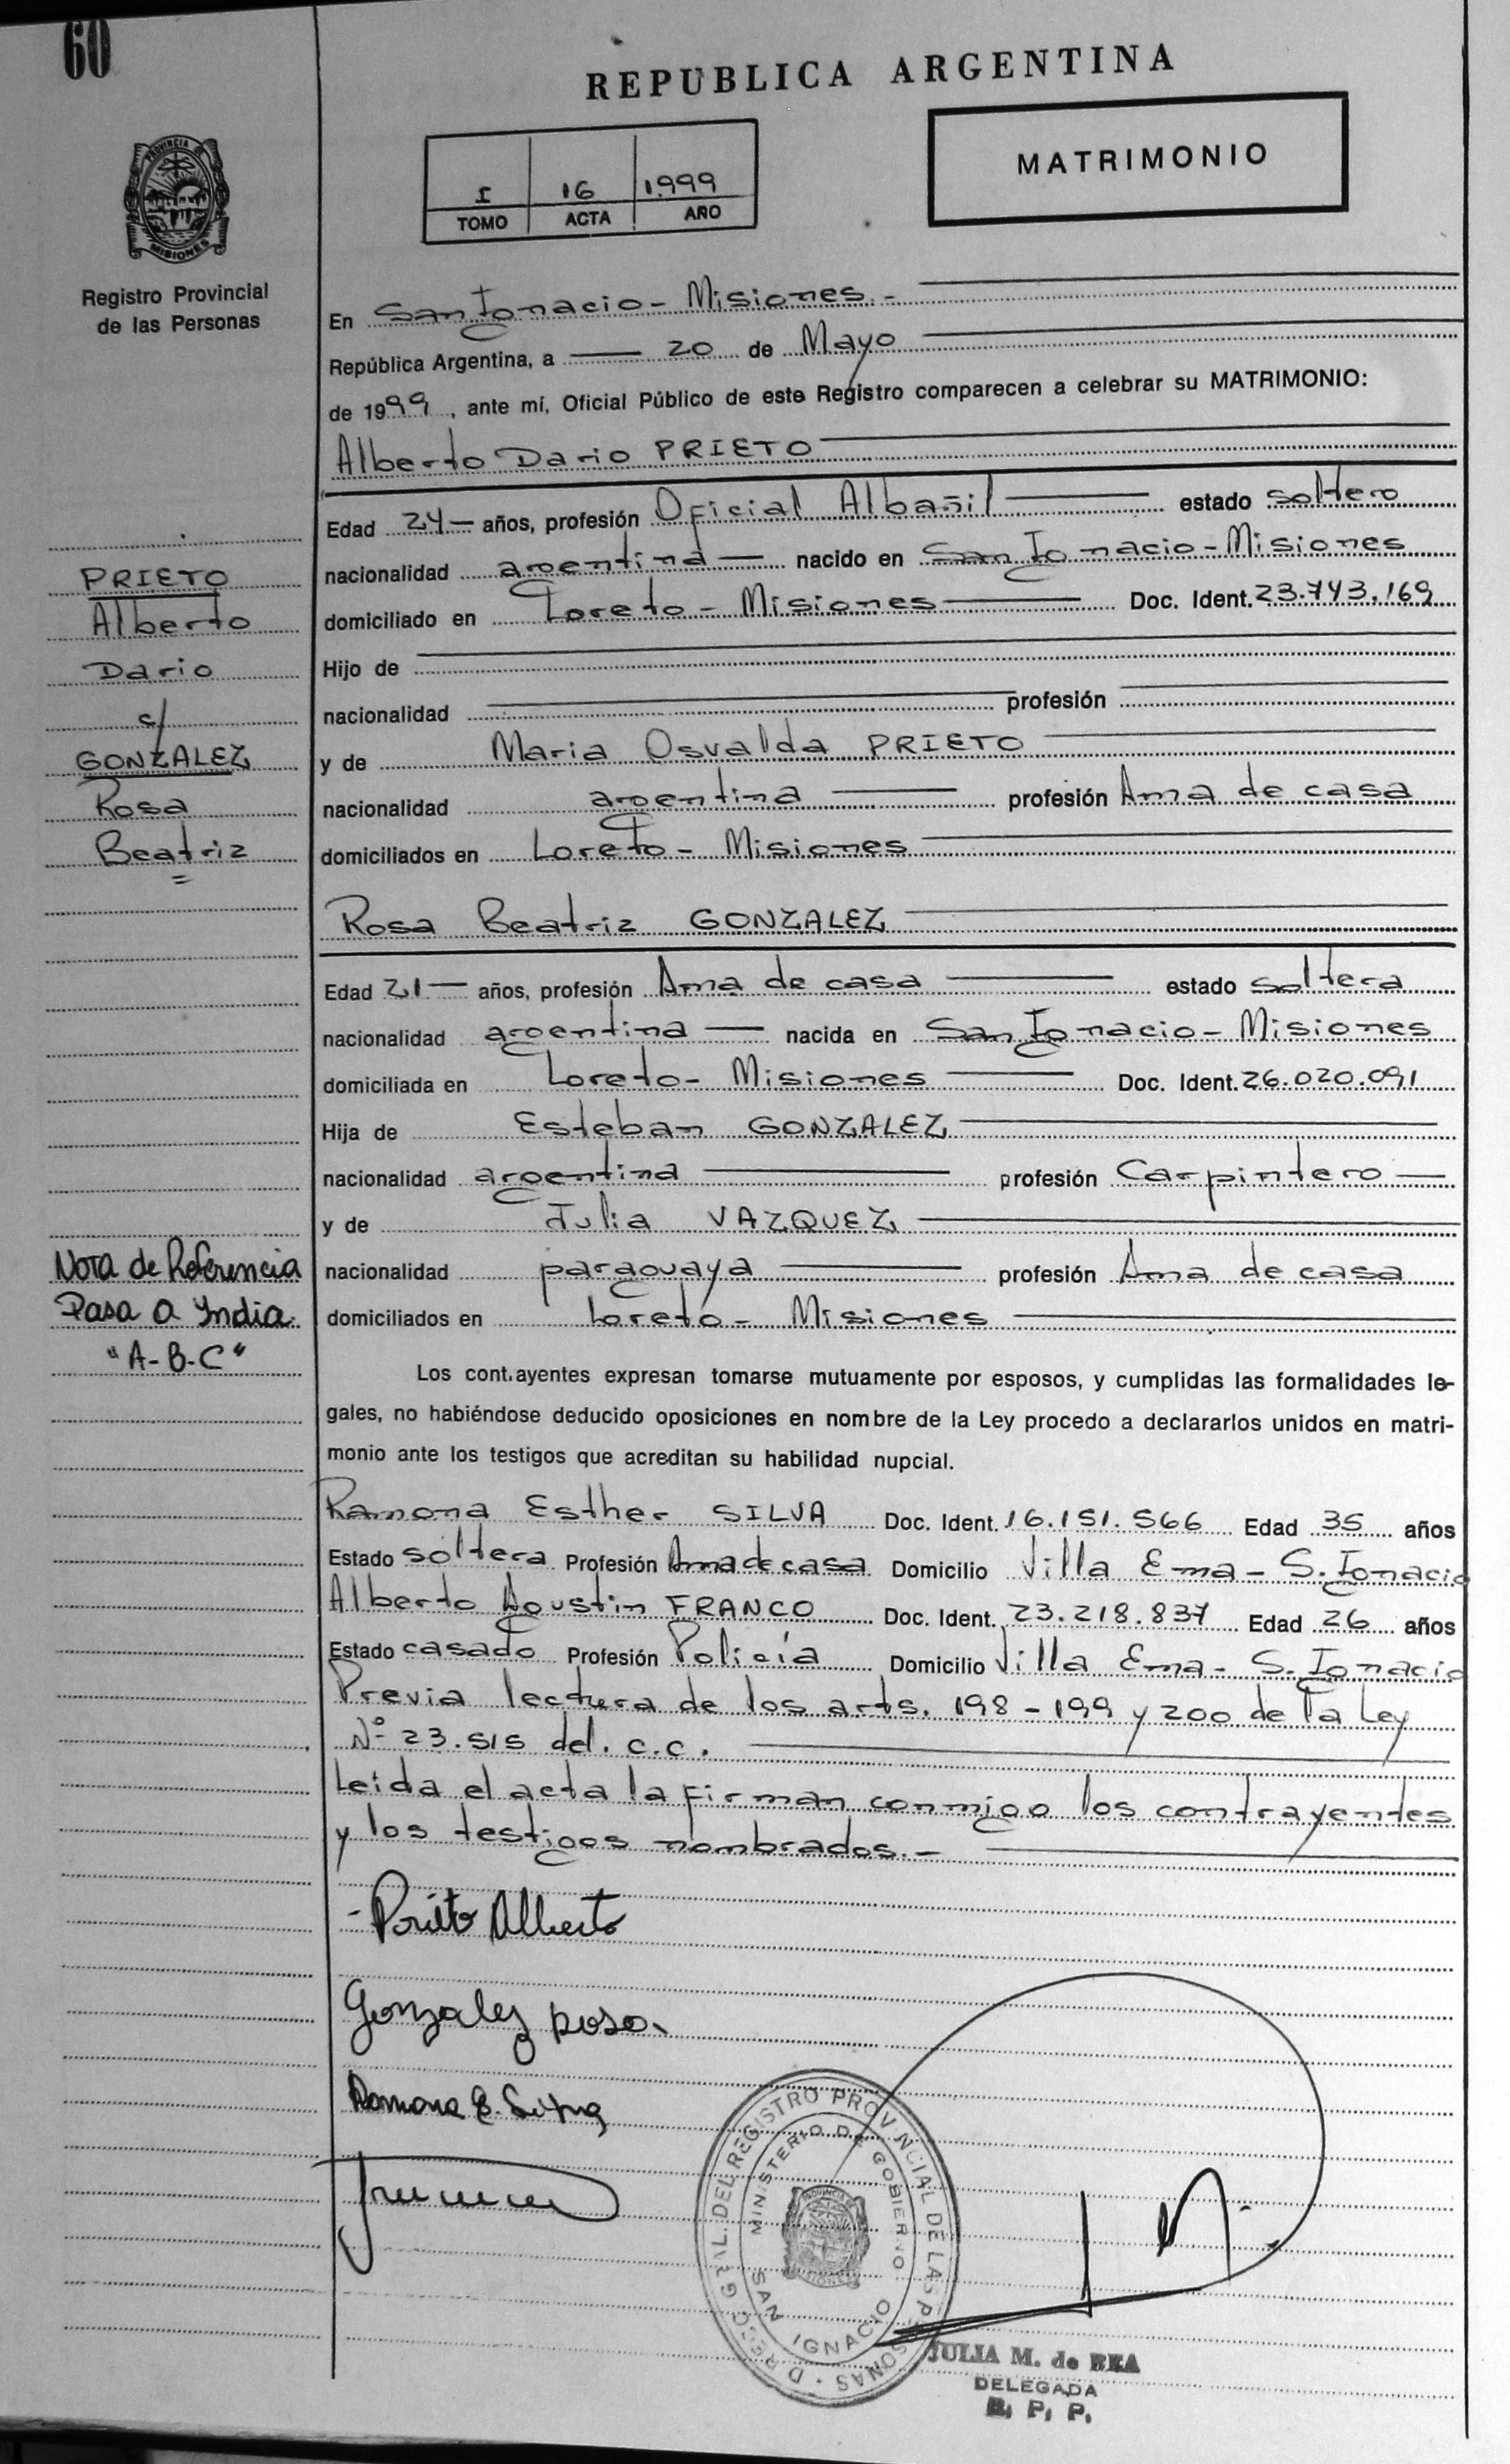 60
REPUBLICA ARGENTINA
PROVINCIA
MISIONES
Registro Provincial
de las Personas
I 16 1.999
TOMO ACTA AÑO
MATRIMONIO
En San Ignacio - Misiones.-
República Argentina, a 20 de Mayo
de 1999, ante mí, Oficial Público de este Registro comparecen a celebrar su MATRIMONIO:
Alberto Dario PRIETO
Edad 24 - años, profesión Oficial Albañil estado soltero
nacionalidad argentina nacido en San Ignacio - Misiones
domiciliado en Loreto - Misiones Doc. Ident. 23.743.169
Hijo de
nacionalidad profesión
y de Maria Osvalda PRIETO
nacionalidad argentina profesión Ama de casa
domiciliados en Loreto - Misiones
PRIETO
Alberto
Dario
c/
GONZALEZ
Rosa
Beatriz
Rosa Beatriz GONZALEZ
Edad 21 - años, profesión Ama de casa estado soltera
nacionalidad argentina nacida en San Ignacio - Misiones
domiciliada en Loreto - Misiones Doc. Ident. 26.020.091
Hija de Esteban GONZALEZ
nacionalidad argentina profesión Carpintero
y de Julia VAZQUEZ
nacionalidad paraguaya profesión Ama de casa
domiciliados en Loreto - Misiones
Nota de Referencia
Pasa a India
"A-B-C"
Los contrayentes expresan tomarse mutuamente por esposos, y cumplidas las formalidades le-
gales, no habiéndose deducido oposiciones en nombre de la Ley procedo a declararlos unidos en matri-
monio ante los testigos que acreditan su habilidad nupcial.
Ramona Esther SILVA Doc. Ident. 16.151.566 Edad 35 años
Estado soltera Profesión Ama de casa Domicilio Villa Ema - S. Ignacio
Alberto Agustin FRANCO Doc. Ident. 23.218.837 Edad 26 años
Estado casado Profesión Policía Domicilio Villa Ema - S. Ignacio
Previa lectura de los arts. 198 - 199 y 200 de la Ley
Nº 23.515 del. c.c.
Leida el acta la firman conmigo los contrayentes
y los testigos nombrados.-
- Prieto Alberto
Gonzalez Rosa
Ramona E. Silva
DIRECC. GRAL. DEL REGISTRO PROVINCIAL DE LAS PERSONAS
MINISTERIO DE GOBIERNO
SAN IGNACIO
JULIA M. de REA
DELEGADA
R. P. P.